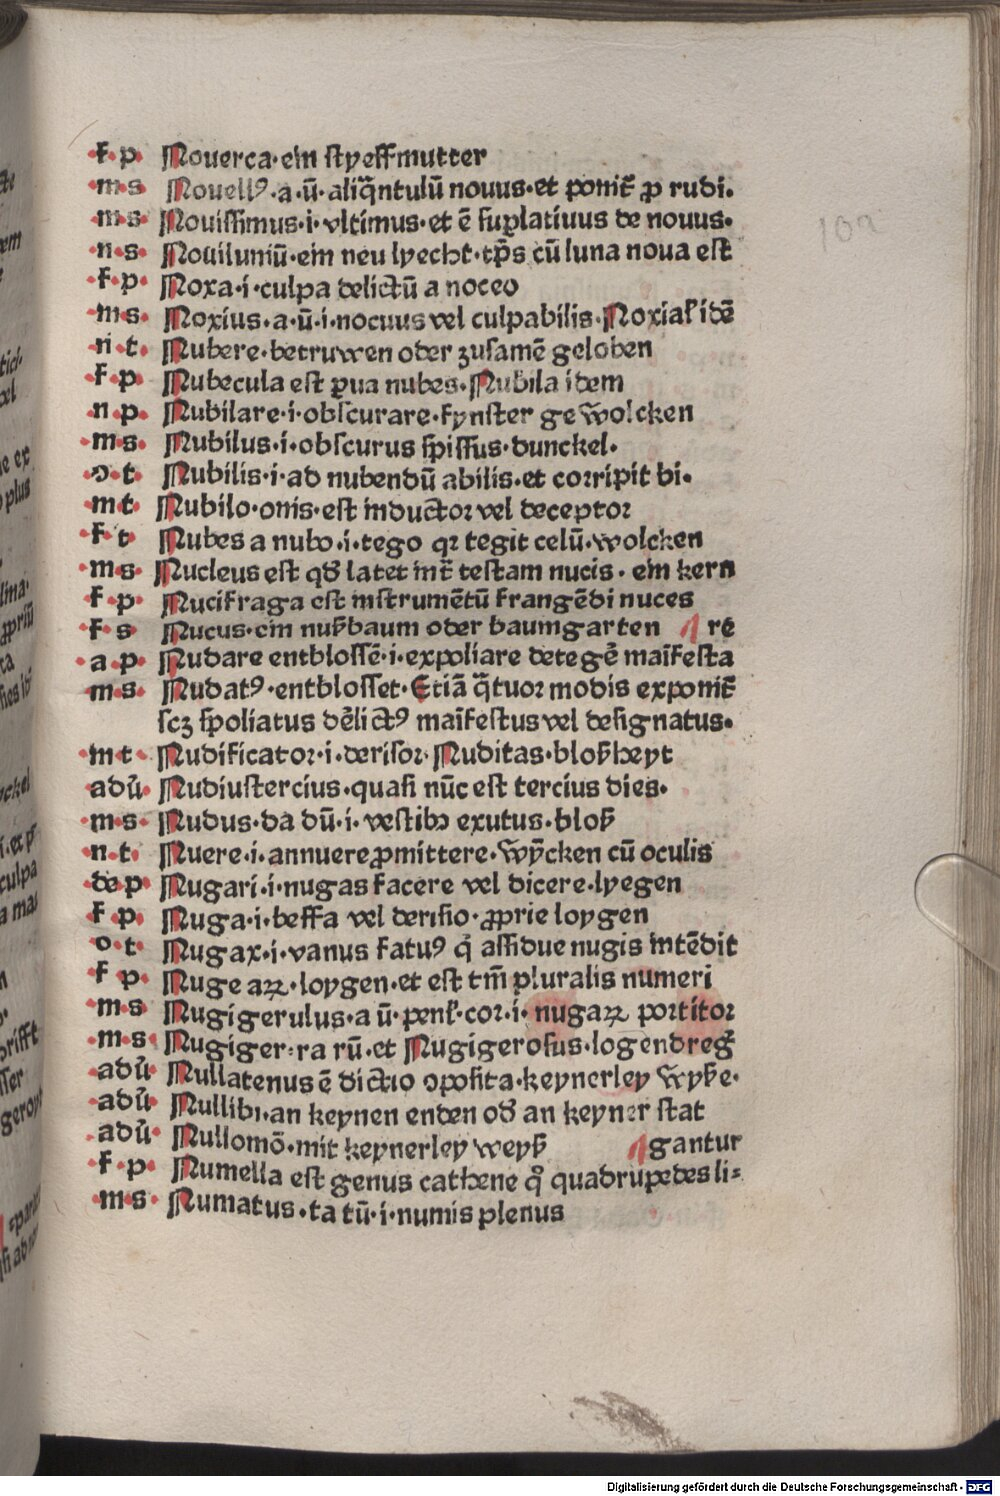 ·f·p· Nouerca·ein styeffmutter
·m·s· Nouellꝰ·a·ū·aliq̄ntulū nouus·et ponit̄ ꝓ rudi·
·m·s· Nouissimus·i·vltimus·et ē suꝑlatiuus de nouus·
·n·s· Nouiluniū·ein neu lyecht·tp̄s cū luna noua est
·f·p· Noxa·i·culpa delictū a noceo
·m·s· Noxius·a·ū·i·nocuus vel culpabilis·Noxial' idē
·n·t· Nubere·betruwen oder zusamē geloben
·f·p· Nubecula est ꝑua nubes·Nubila idem
·n·p· Nubilare·i·obscurare·fynster gewolcken
·m·s· Nubilus·i·obscurus spissus·dunckel·
·o·t· Nubilis·i·ad nubendū abilis·et corripit bi·
·m·t· Nubilo·onis·est inductor vel deceptor
·f·t· Nubes a nubo·i·tego qꝛ tegit celū·wolcken
·m·s· Nucleus est qd̄ latet int̄ testam nucis·ein kern
·f·p· Nucifraga est instrumētū frangēdi nuces
·f·s· Nucus·ein nußbaum oder baumgarten ¶ re
·a·p· Nudare entblossē·i·expoliare detegē maīfesta
·m·s· Nudatꝰ·entblosset·Etiā q̄tuor modis exponit̄
scꝫ spoliatus dēlictꝰ maīfestus vel designatus·
·m·t· Nudificator·i·derisor·Nuditas·bloßheyt
adū· Nudiustercius·quasi nūc est tercius dies·
·m·s· Nudus·da dū·i·vestibꝫ exutus·bloß
·n·t· Nuere·i·annuere ꝓmittere·wȳcken cū oculis
de p· Nugari·i·nugas facere vel dicere·lyegen
f·p· Nuga·i·beffa vel derisio·ꝓprie loygen
o·t· Nugax·i·vanus fatuꝰ q̇ assidue nugis intēdit
f p· Nuge aꝝ·loygen·et est tm̄ pluralis numeri
·m·s Nugigerulus·a ū·penl'·cor·i·nugaꝝ portitor
·m·s· Nugiger·ra rū·et Nugigerosus·logendreg'
·adū· Nullatenus ē dictio ↄposita·keynerley wyse·
·adū· Nullibi·an keynen enden od' an keyner stat
·adū· Nullomō·mit keynerley weyß ¶ gantur
·f·p· Numella est genus cathene q̊ quadrupedes li⸗
·m·s· Numatus·ta tū·i·numis plenus
102
Digitalisierung gefördert durch die Deutsche Forschungsgemeinschaft - DFG